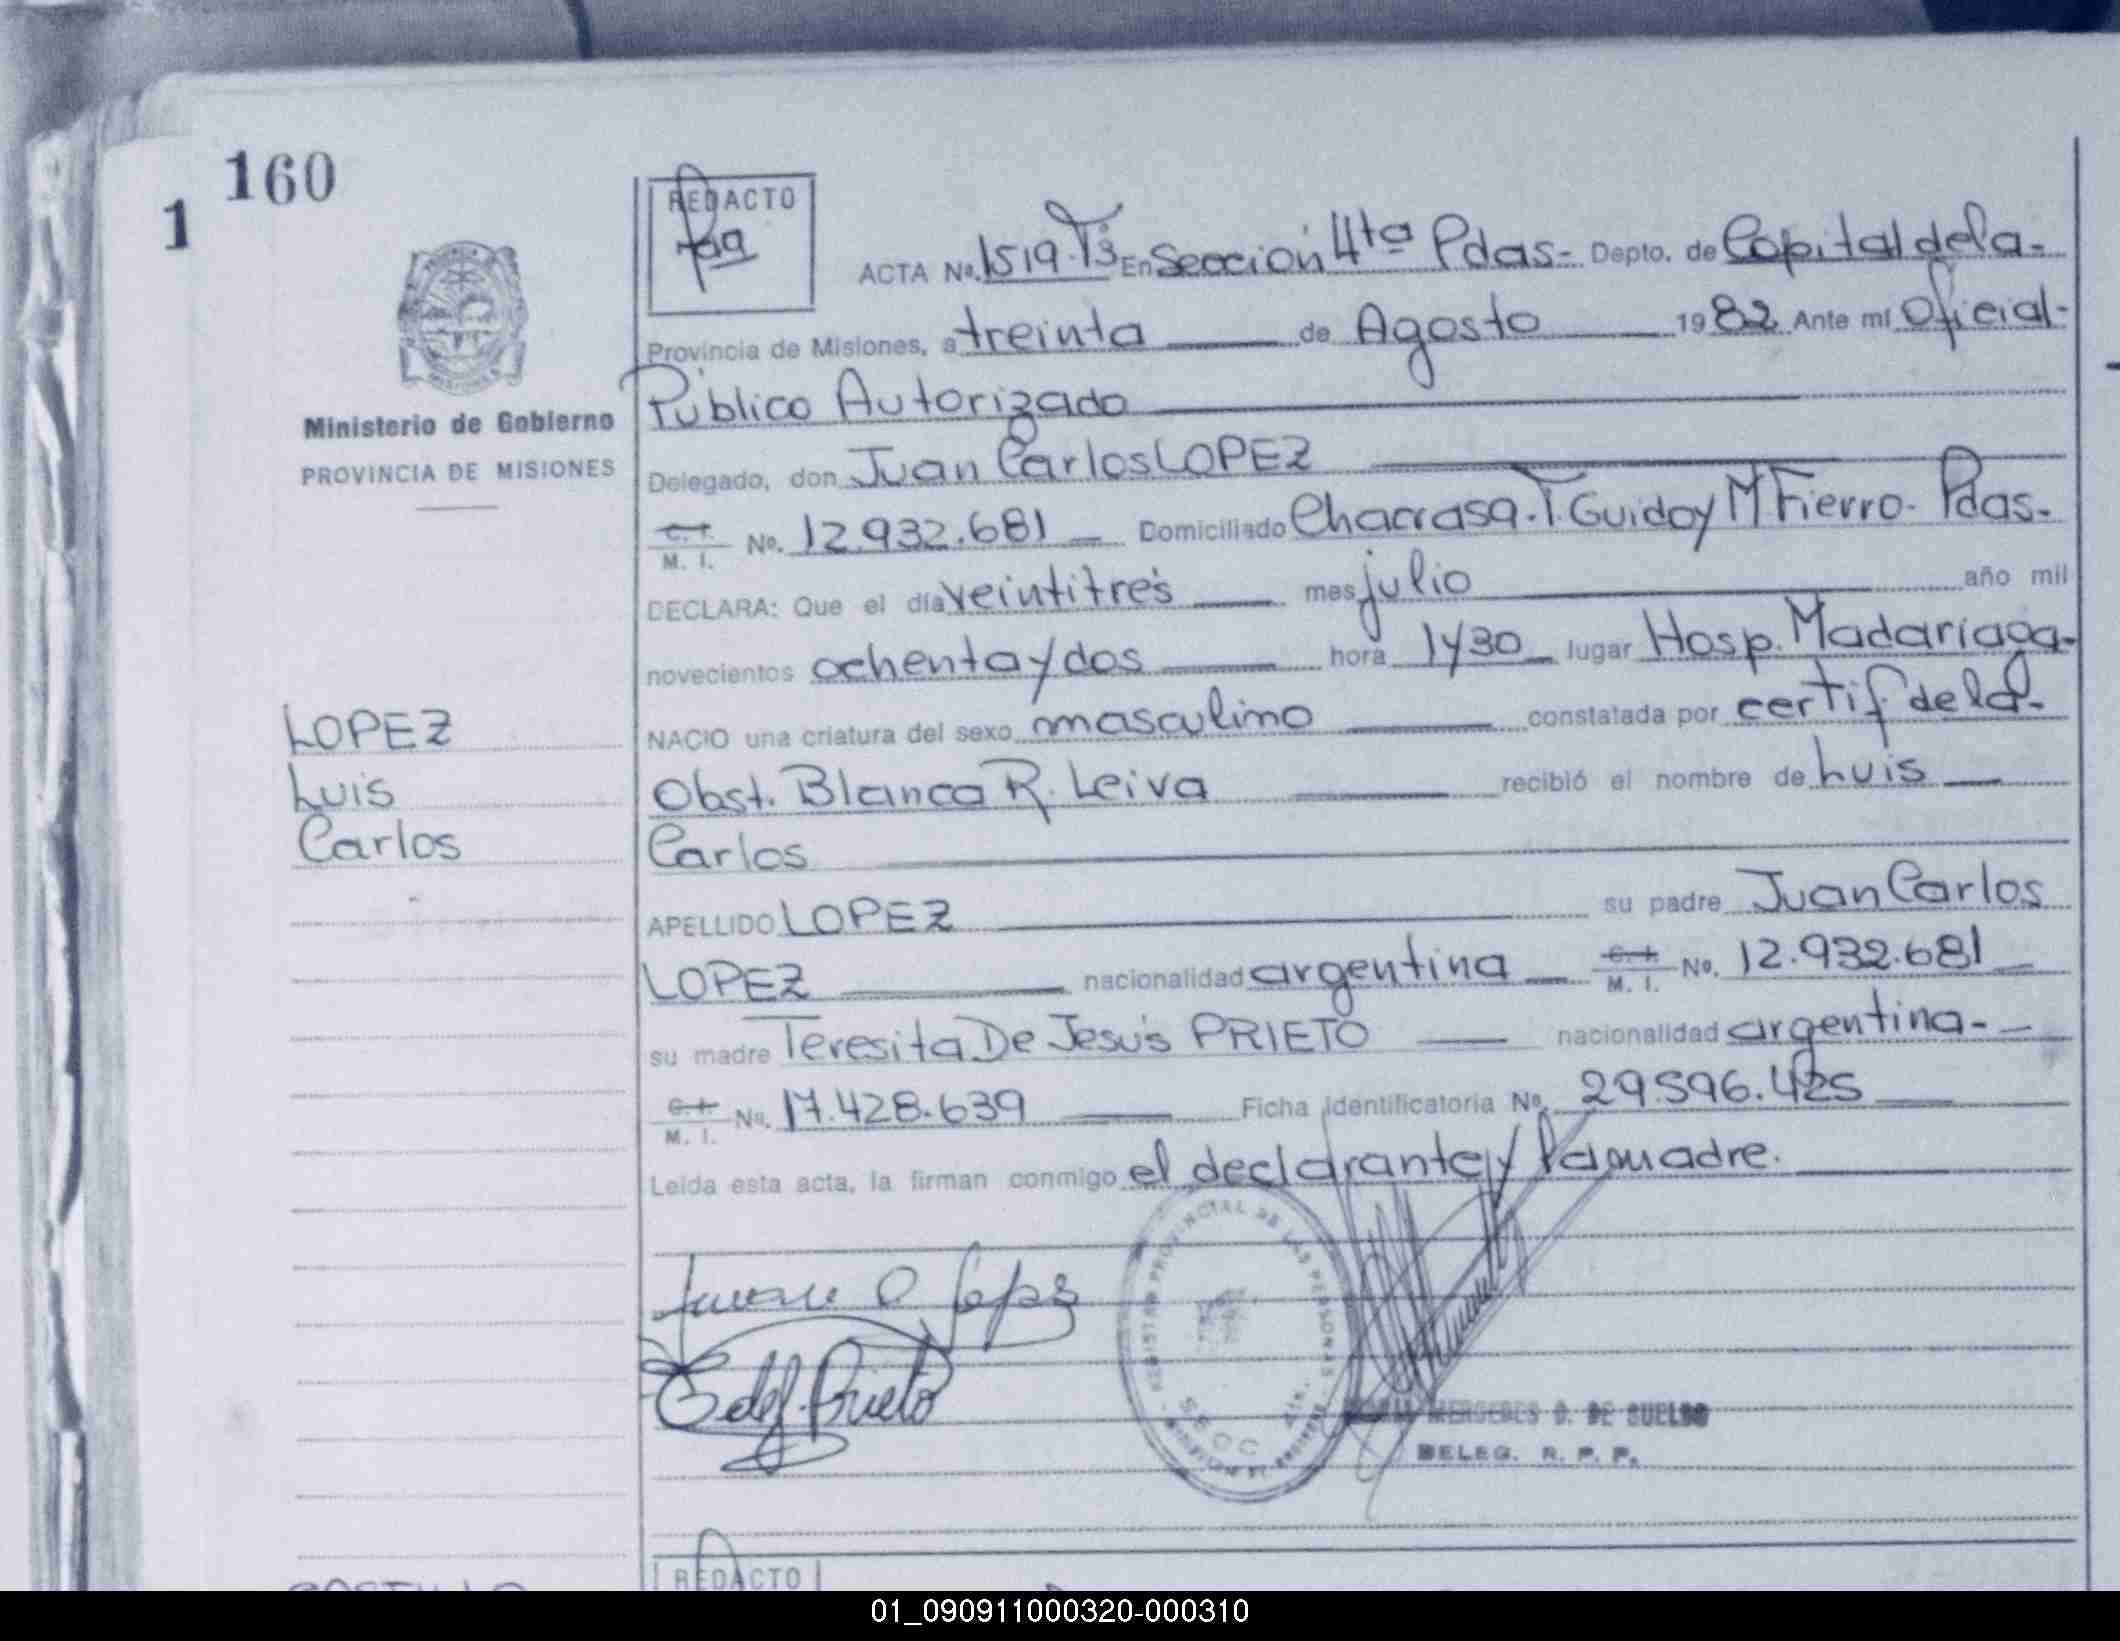 160
1
Ministerio de Gobierno
PROVINCIA DE MISIONES
REDACTO
ACTA No. 1519. T3 En Sección 4ta Pdas- Depto. de Capital de la-
Provincia de Misiones, a treinta de Agosto 1982 Ante mí Oficial-
Público Autorizado
Delegado, don Juan Carlos LOPEZ
C. I.
M. I. No. 12.932.681 Domiciliado Chacra 59. T. Guido y M Fierro- Pdas-
DECLARA: Que el día veintitrés mes julio año mil
novecientos ochenta y dos hora 1 y 30 lugar Hosp. Madariaga-
NACIO una criatura del sexo masculino constatada por certif de la-
Obst. Blanca R. Leiva recibió el nombre de Luis
Carlos
APELLIDO LOPEZ su padre Juan Carlos
LOPEZ nacionalidad argentina C. I.
M. I. No. 12.932.681
su madre Teresita De Jesús PRIETO nacionalidad argentina-
C. I.
M. I. No. 17.428.639 Ficha identificatoria No. 29.596.425
Leída esta acta, la firman conmigo el declarante y la madre.
LOPEZ
Luis
Carlos
T de J. Prieto
REGISTRO PROVINCIAL DE LAS PERSONAS
SECC 4ta
MERCEDES D. DE SUELDO
DELEG. R. P. P.
REDACTO
01_090911000320-000310